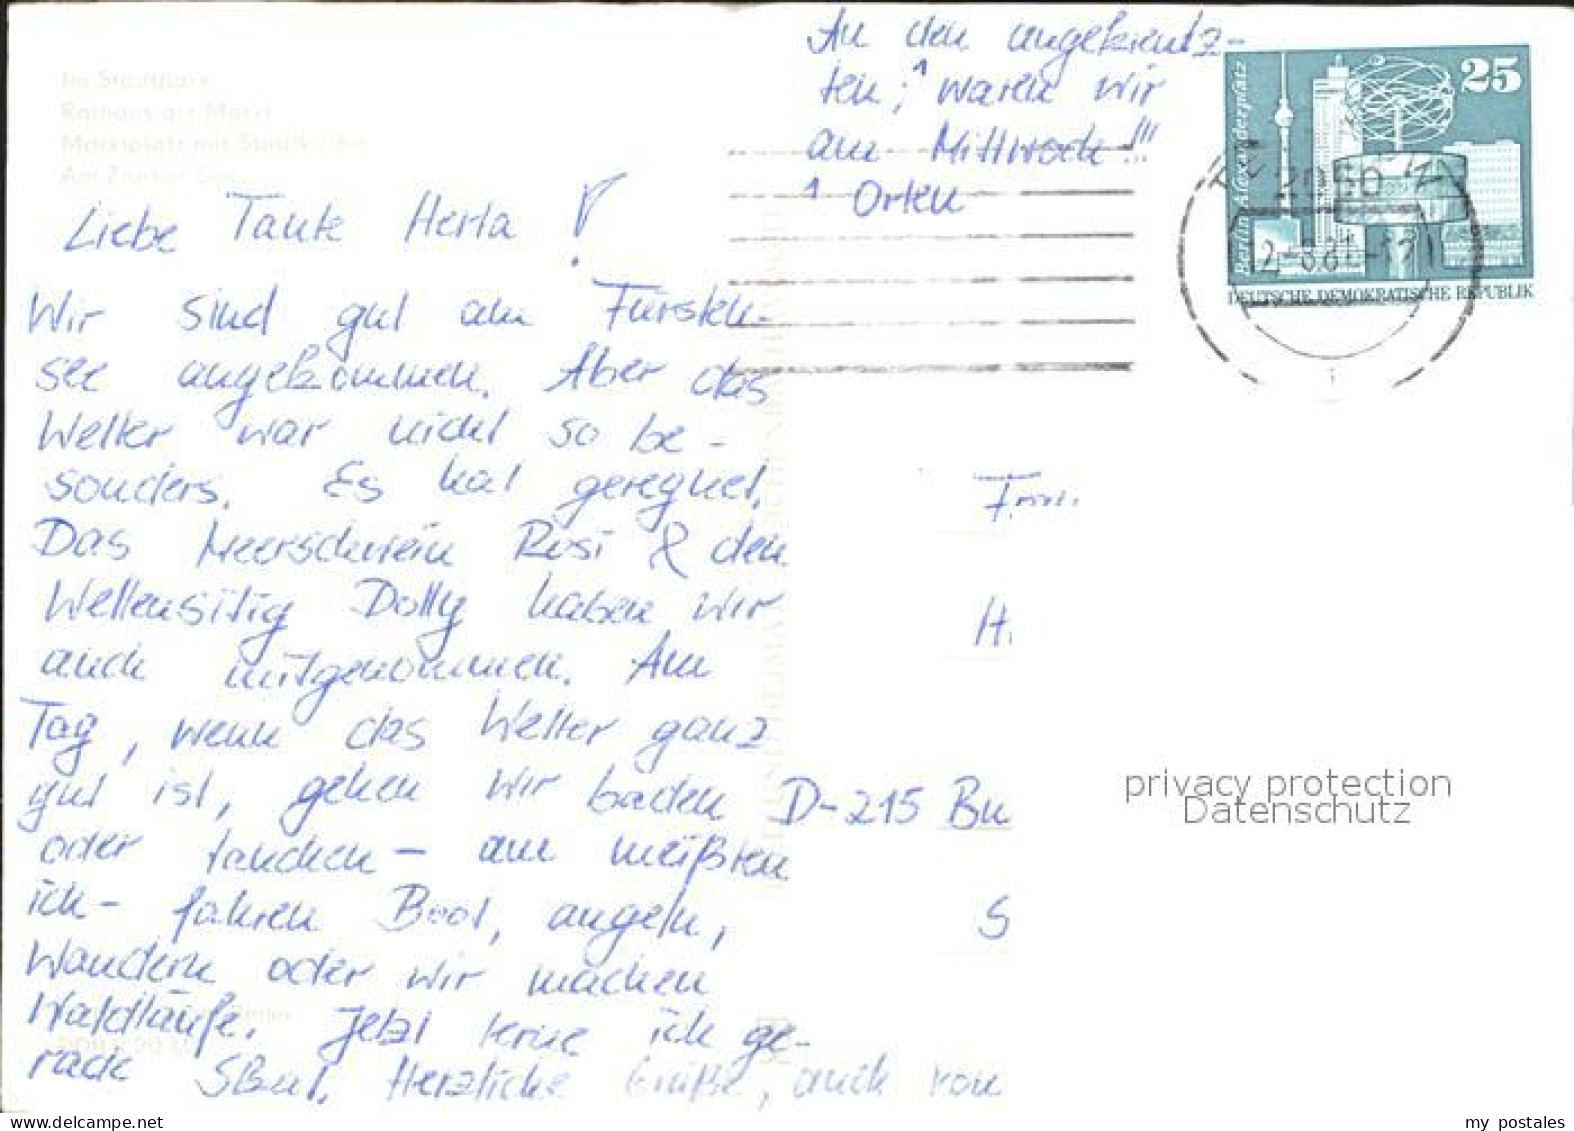 An den angekreutz-
ten, ¹ waren wir
am Mittwoch!!!
¹ Orten
Berlin-Alexanderplatz
25
DEUTSCHE DEMOKRATISCHE REPUBLIK
Im Stadtpark
Rathaus am Markt
Marktplatz mit Stadtkirche
Liebe Tante Herta!
Wir sind gut am Fürsten-
see angekommen. Aber das
Wetter war nicht so be-
sonders. Es hat geregnet.
Das Meerschwein Rosi & den
Wellensitig Dolly haben wir
auch mitgenommen. Am
Tag, wenn das Wetter ganz
gut ist, gehen wir baden
oder tauchen - am meißten
ich - fahren Boot, angeln,
Wandern oder wir machen
Waldläufe. Jetzt lerne ich ge-
rade Skat. Herzliche Grüße, auch von
H.
D-215 Bu
S
privacy protection
Datenschutz
my postales